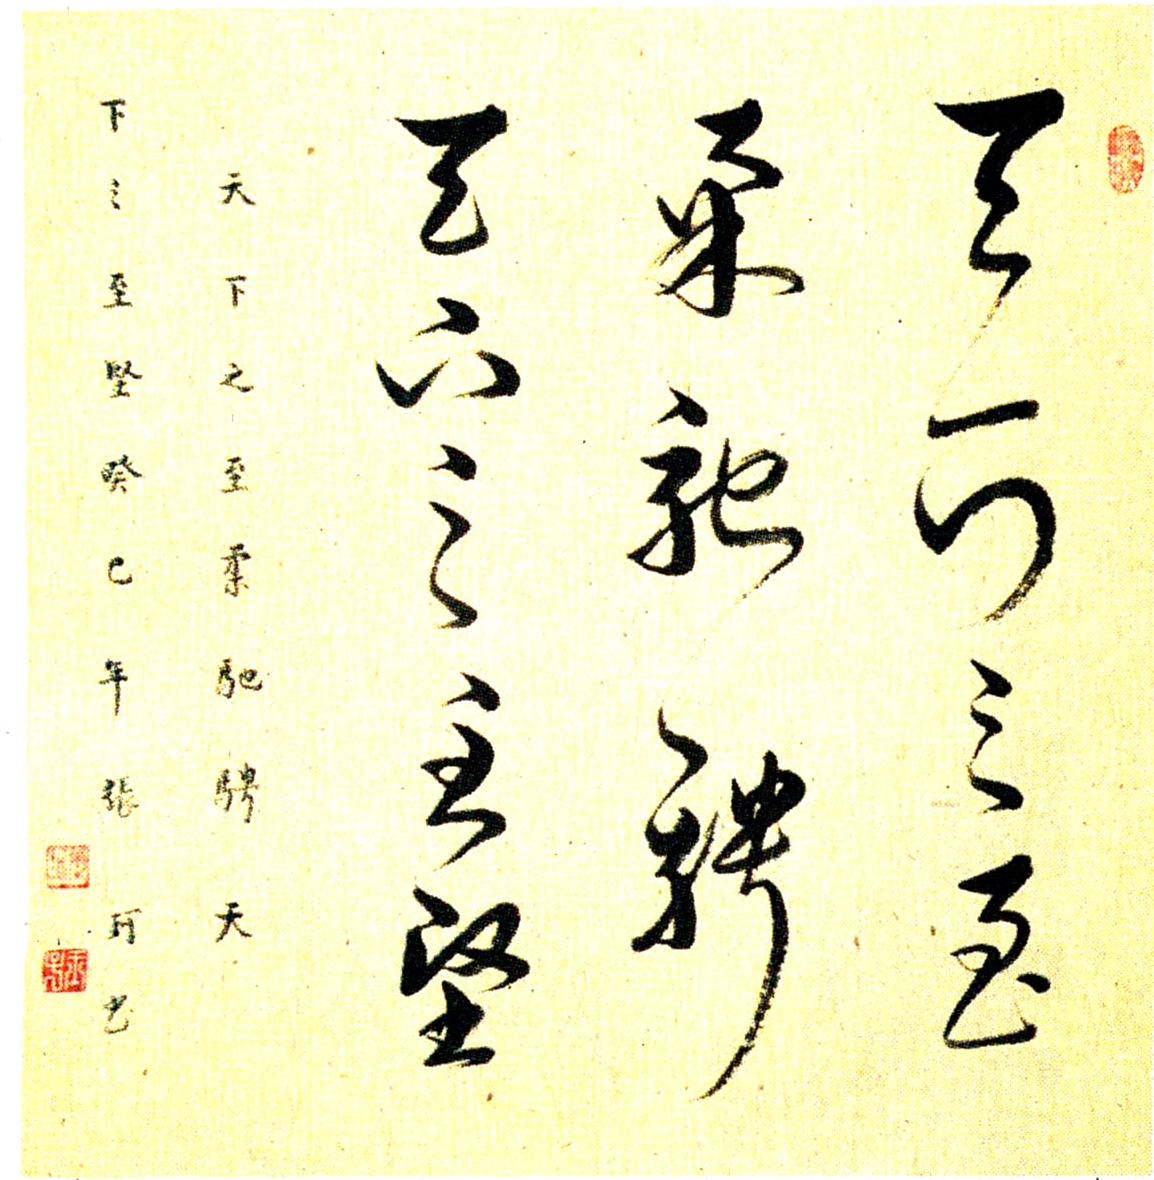 天下之至
柔馳騁
天下之至堅
天下之至柔馳騁天
下之至堅癸巳年張珂書